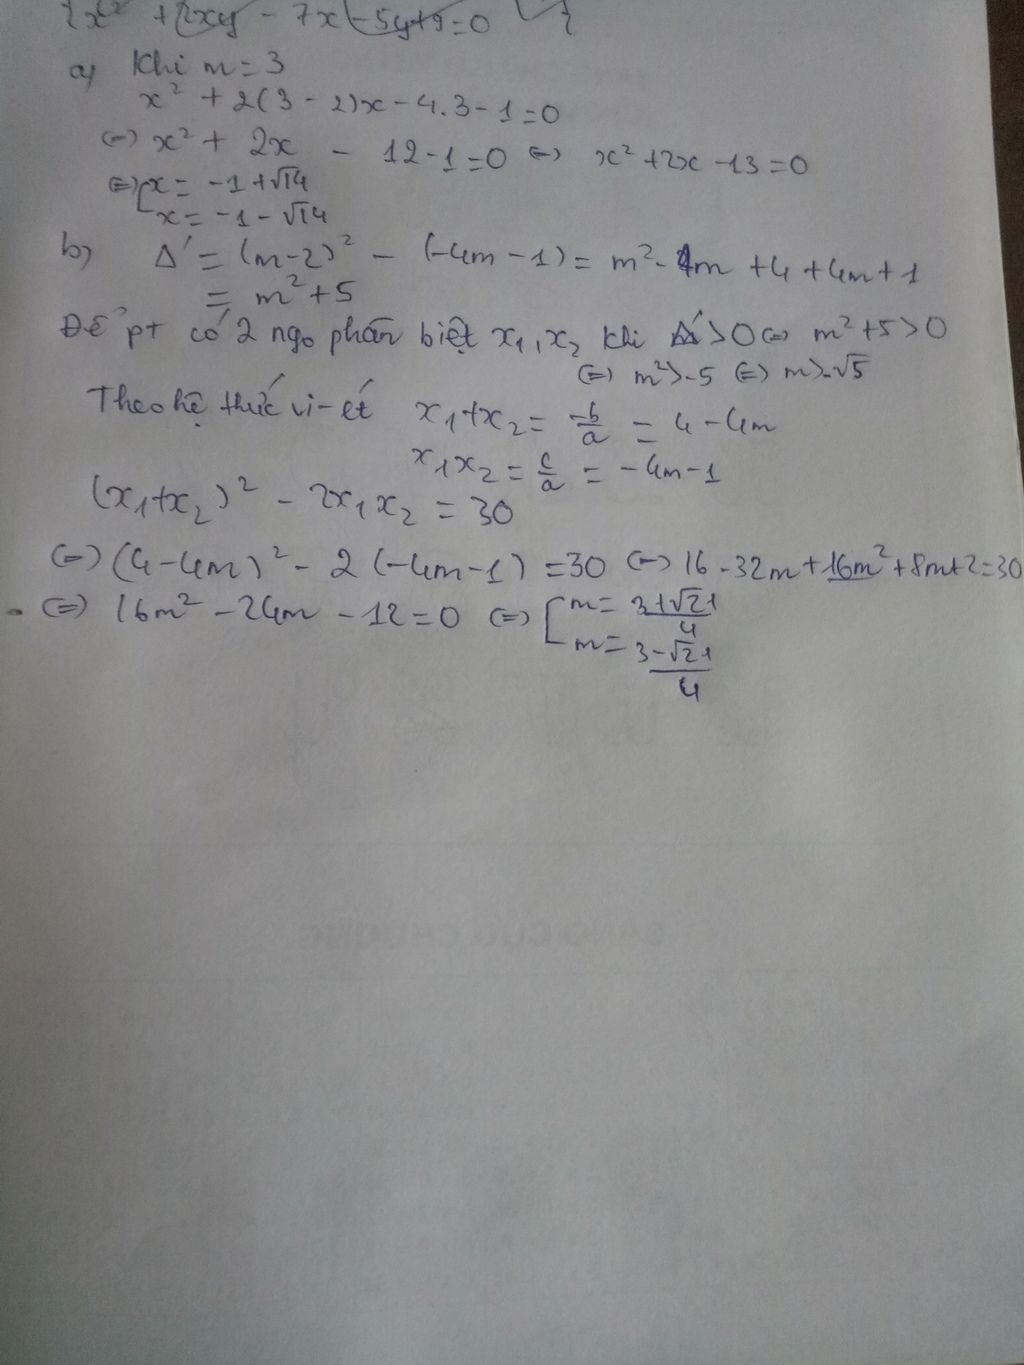 x² + 2xy - 7x - 5y + 9 = 0
a) Khi m = 3
x² + 2(3 - 2)x - 4.3 - 1 = 0
(=) x² + 2x - 12 - 1 = 0 (=) x² + 2x - 13 = 0
(=) [x = -1 + √14
x = -1 - √14
b) Δ' = (m-2)² - (-4m - 1) = m² - 4m + 4 + 4m + 1
= m² + 5
Để pt có 2 ngo phân biệt x₁, x₂ khi Δ' > 0 (=) m² + 5 > 0
(=) m² > -5 (=) m > -√5
Theo hệ thức vi-ét x₁ + x₂ = -b/a = 4 - 4m
x₁x₂ = c/a = -4m - 1
(x₁ + x₂)² - 2x₁x₂ = 30
(=) (4 - 4m)² - 2(-4m - 1) = 30 (=) 16 - 32m + 16m² + 8m + 2 = 30
(=) 16m² - 24m - 12 = 0 (=) [m = (3 + √21)/4
m = (3 - √21)/4